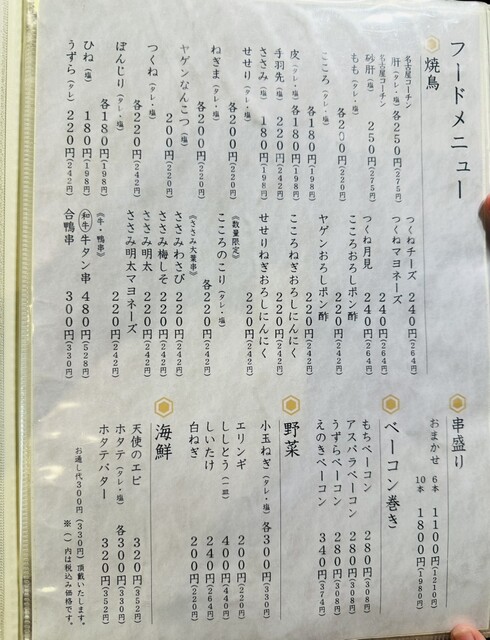 フードメニュー
焼鳥
名古屋コーチン
肝(タレ・塩) 各250円(275円)
名古屋コーチン
砂肝(塩) 250円(275円)
もも(タレ・塩) 各200円(220円)
こころ(タレ・塩) 各180円(198円)
皮(タレ・塩) 各180円(198円)
手羽先(塩) 220円(242円)
ささみ(塩) 180円(198円)
せせり(タレ・塩) 各200円(220円)
ねぎま(タレ・塩) 各200円(220円)
ヤゲンなんこつ(塩) 200円(220円)
つくね(タレ・塩) 各220円(242円)
ぼんじり(タレ・塩) 各180円(198円)
ひね(塩) 180円(198円)
うずら(タレ) 220円(242円)
つくねチーズ 240円(264円)
つくねマヨネーズ 240円(264円)
つくね月見 240円(264円)
こころおろしポン酢 220円(242円)
ヤゲンおろしポン酢 220円(242円)
こころねぎおろしにんにく 220円(242円)
せせりねぎおろしにんにく 220円(242円)
《数量限定》
こころのこり(タレ・塩) 各220円(242円)
《ささみ大葉串》
ささみわさび 220円(242円)
ささみ梅しそ 220円(242円)
ささみ明太 220円(242円)
ささみ明太マヨネーズ 220円(242円)
《牛・鴨串》
和牛牛タン串 480円(528円)
合鴨串 300円(330円)
串盛り
おまかせ 6本 1100円(1210円)
10本 1800円(1980円)
ベーコン巻き
もちベーコン 280円(308円)
アスパラベーコン 280円(308円)
うずらベーコン 280円(308円)
えのきベーコン 340円(374円)
野菜
小玉ねぎ(タレ・塩) 各300円(330円)
エリンギ 200円(220円)
ししとう(一皿) 400円(440円)
しいたけ 240円(264円)
白ねぎ 200円(220円)
海鮮
天使のエビ 320円(352円)
ホタテ(タレ・塩) 各300円(330円)
ホタテバター 320円(352円)
お通し代300円(330円)頂戴いたします。
※( )内は税込み価格です。